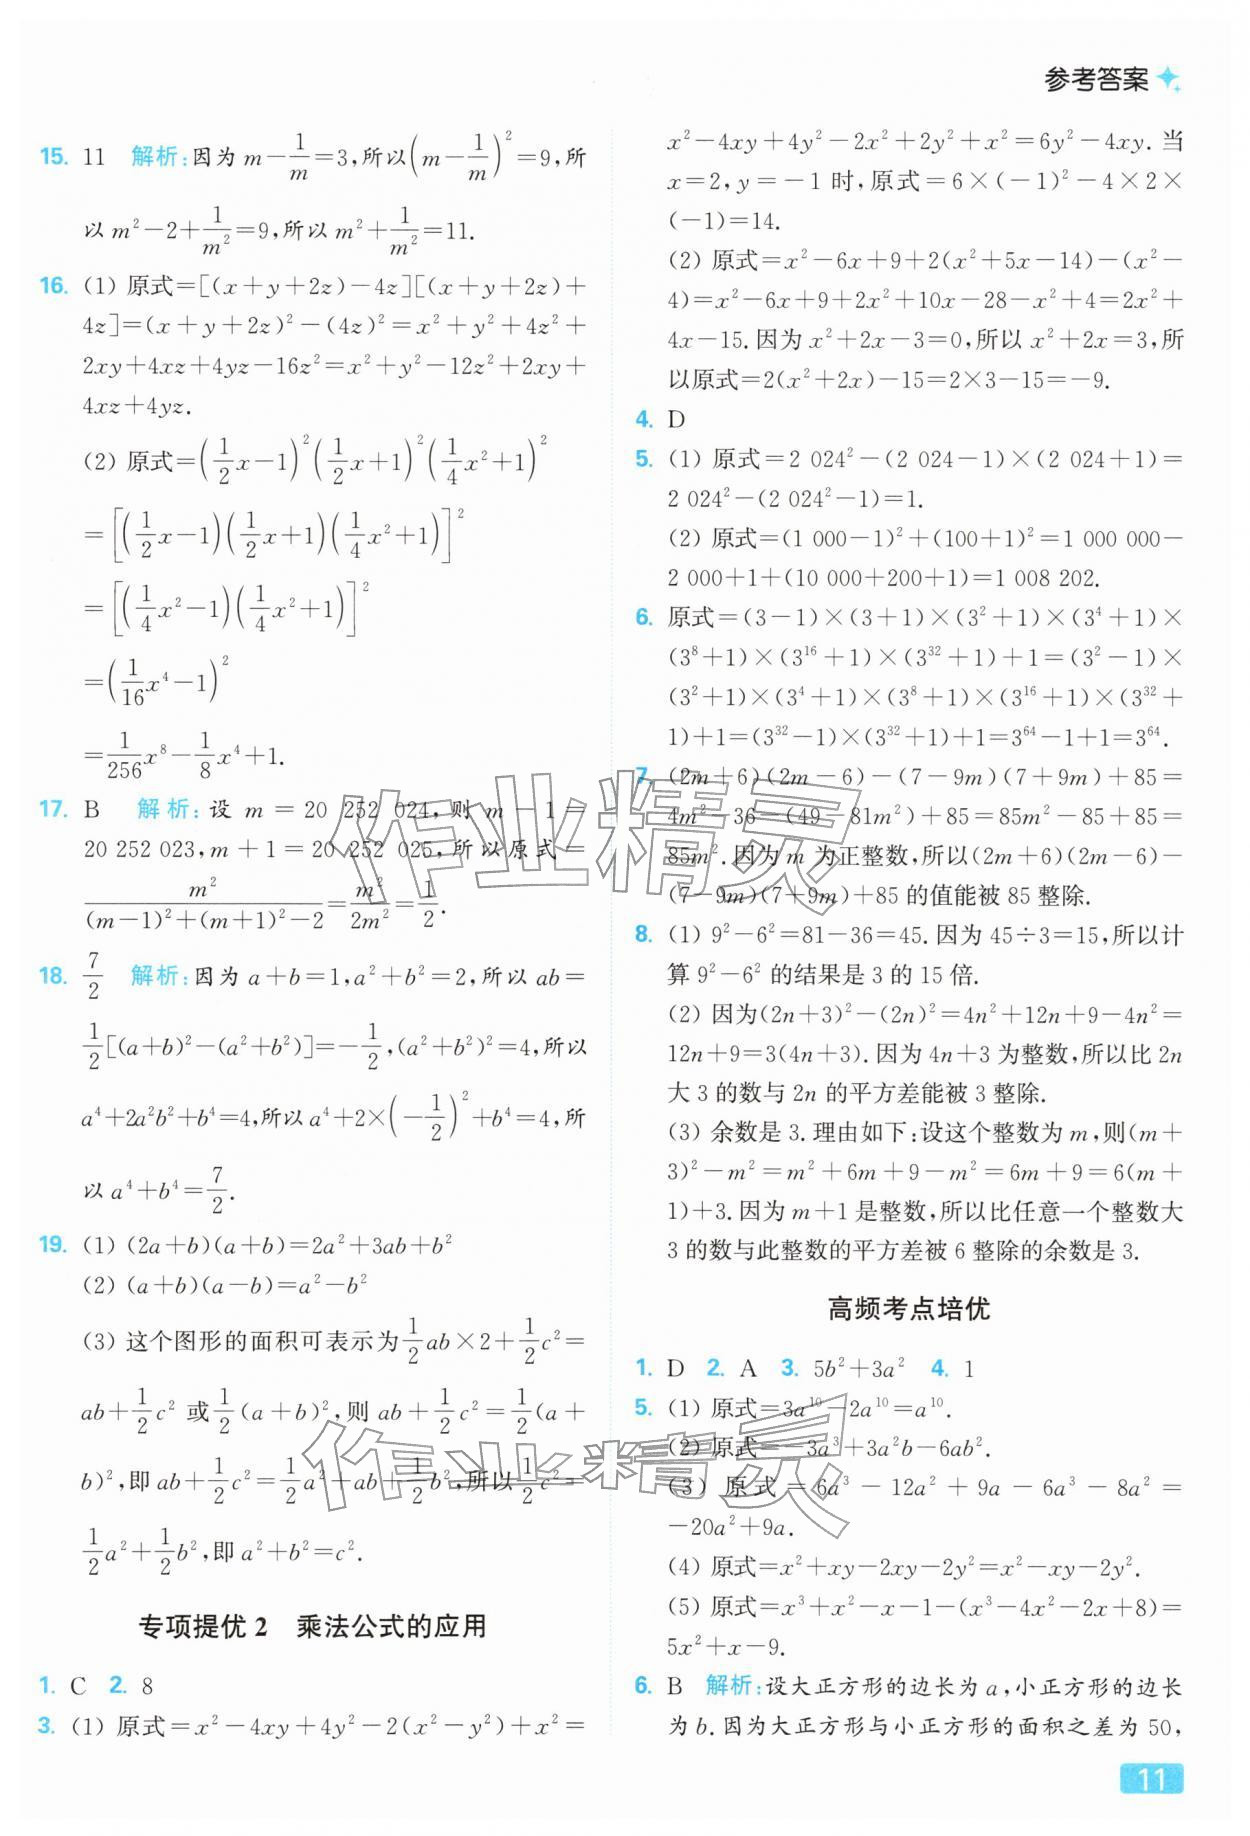 参考答案
15. 11 解析:因为 m-1/m=3,所以(m-1/m)²=9,所
以 m²-2+1/m²=9,所以 m²+1/m²=11.
16. (1) 原式=[(x+y+2z)-4z][(x+y+2z)+
4z]=(x+y+2z)²-(4z)²=x²+y²+4z²+
2xy+4xz+4yz-16z²=x²+y²-12z²+2xy+
4xz+4yz.
(2) 原式=(1/2x-1)²(1/2x+1)²(1/4x²+1)²
=[(1/2x-1)(1/2x+1)(1/4x²+1)]²
=[(1/4x²-1)(1/4x²+1)]²
=(1/16x⁴-1)²
=1/256x⁸-1/8x⁴+1.
17. B 解析:设 m=20 252 024,则 m-1=
20 252 023,m+1=20 252 025,所以原式=
m²/((m-1)²+(m+1)²-2)=m²/2m²=1/2.
18. 7/2 解析:因为 a+b=1,a²+b²=2,所以 ab=
1/2[(a+b)²-(a²+b²)]=-1/2,(a²+b²)²=4,所以
a⁴+2a²b²+b⁴=4,所以 a⁴+2×(-1/2)²+b⁴=4,所
以 a⁴+b⁴=7/2.
19. (1) (2a+b)(a+b)=2a²+3ab+b²
(2) (a+b)(a-b)=a²-b²
(3) 这个图形的面积可表示为1/2ab×2+1/2c²=
ab+1/2c² 或1/2(a+b)²,则 ab+1/2c²=1/2(a+
b)²,即 ab+1/2c²=1/2a²+ab+1/2b²,所以1/2c²=
1/2a²+1/2b²,即 a²+b²=c².
专项提优2 乘法公式的应用
1. C 2. 8
3. (1) 原式=x²-4xy+4y²-2(x²-y²)+x²=
x²-4xy+4y²-2x²+2y²+x²=6y²-4xy. 当
x=2,y=-1 时,原式=6×(-1)²-4×2×
(-1)=14.
(2) 原式=x²-6x+9+2(x²+5x-14)-(x²-
4)=x²-6x+9+2x²+10x-28-x²+4=2x²+
4x-15.因为 x²+2x-3=0,所以 x²+2x=3,所
以原式=2(x²+2x)-15=2×3-15=-9.
4. D
5. (1) 原式=2 024²-(2 024-1)×(2 024+1)=
2 024²-(2 024²-1)=1.
(2) 原式=(1 000-1)²+(100+1)²=1 000 000-
2 000+1+(10 000+200+1)=1 008 202.
6. 原式=(3-1)×(3+1)×(3²+1)×(3⁴+1)×
(3⁸+1)×(3¹⁶+1)×(3³²+1)+1=(3²-1)×
(3²+1)×(3⁴+1)×(3⁸+1)×(3¹⁶+1)×(3³²+
1)+1=(3³²-1)×(3³²+1)+1=3⁶⁴-1+1=3⁶⁴.
7. (2m+6)(2m-6)-(7-9m)(7+9m)+85=
4m²-36-(49-81m²)+85=85m²-85+85=
85m².因为 m 为正整数,所以(2m+6)(2m-6)-
(7-9m)(7+9m)+85 的值能被 85 整除.
8. (1) 9²-6²=81-36=45.因为 45÷3=15,所以计
算 9²-6² 的结果是 3 的 15 倍.
(2) 因为(2n+3)²-(2n)²=4n²+12n+9-4n²=
12n+9=3(4n+3).因为 4n+3 为整数,所以比 2n
大 3 的数与 2n 的平方差能被 3 整除.
(3) 余数是 3.理由如下:设这个整数为 m,则(m+
3)²-m²=m²+6m+9-m²=6m+9=6(m+
1)+3.因为 m+1 是整数,所以比任意一个整数大
3 的数与此整数的平方差被 6 整除的余数是 3.
高频考点培优
1. D 2. A 3. 5b²+3a² 4. 1
5. (1) 原式=3a¹⁰-2a¹⁰=a¹⁰.
(2) 原式=-3a³+3a²b-6ab².
(3) 原式=6a³-12a²+9a-6a³-8a²=
-20a²+9a.
(4) 原式=x²+xy-2xy-2y²=x²-xy-2y².
(5) 原式=x³+x²-x-1-(x³-4x²-2x+8)=
5x²+x-9.
6. B 解析:设大正方形的边长为 a,小正方形的边长
为 b.因为大正方形与小正方形的面积之差为 50,
11
作业精灵
作业精灵